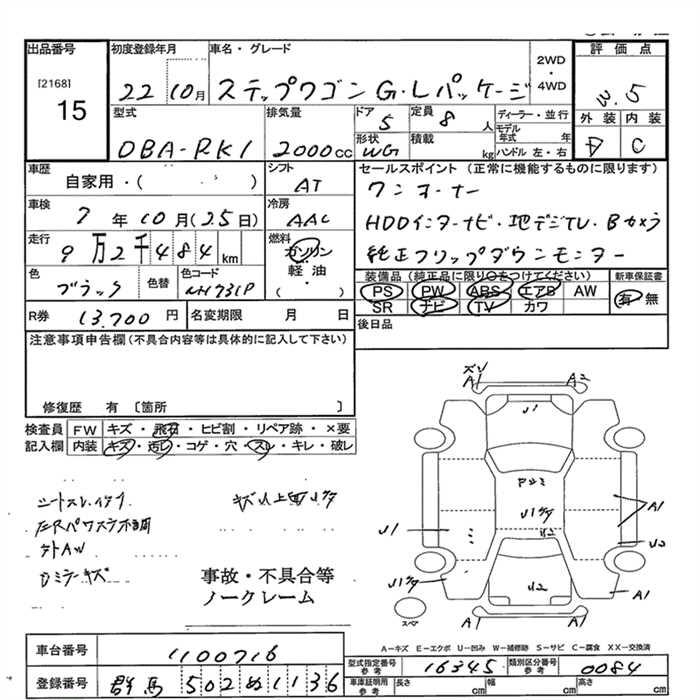 出品番号
[2168]
15
初度登録年月
22 10月
車名・グレード
ステップワゴン G・Lパッケージ
2WD
・
4WD
評価点
3.5
型式
DBA-RK1
排気量
2000cc
ドア
5
定員
8人
ディーラー・並行
モデル年式 年
ハンドル 左・右
形状
WG
積載
kg
外装 内装
D C
車歴
自家用・( )
シフト
AT
車検
7年10月(25日)
冷房
AAC
走行
9万2千484km
燃料
ガソリン
・
軽・油
( )
色
ブラック
色替
色コード
NH731P
R券
13,700円
名変期限 月 日
セールスポイント (正常に機能するものに限ります)
ワンオーナー
HDDインターナビ・地デジTV・Bカメラ
純正フリップダウンモニター
装備品(純正品に限り○をつけてください)
PS PW ABS エアB AW
SR ナビ TV カワ
新車保証書
有 無
後日品
注意事項申告欄(不具合内容等は具体的に記入して下さい)
修復歴 有 〔箇所 〕
検査員記入欄
FW キズ・飛石・ヒビ割・リペア跡・×要
内装 キズ・汚レ・コゲ・穴・スレ・キレ・破レ
シートスレ
キズ
ミラーキズ
事故・不具合等
ノークレーム
A1 A2
U1
U2
A1
U2
U1
U2
A1
スペア
A1 A1
A-キズ E-エクボ U-凹み W-補修跡 S-サビ C-腐食 XX-交換済
車台番号
1100716
登録番号
群馬 502 ぬ 1136
型式指定番号 参考
16345
類別区分番号 参考
0084
車庫証明用 参考
長さ cm 幅 cm 高さ cm